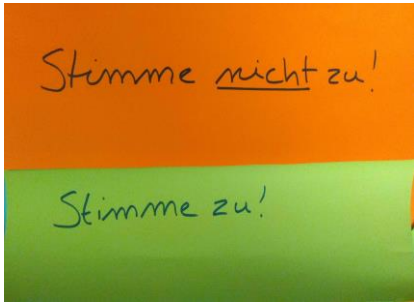 Stimme nicht zu!
Stimme zu!